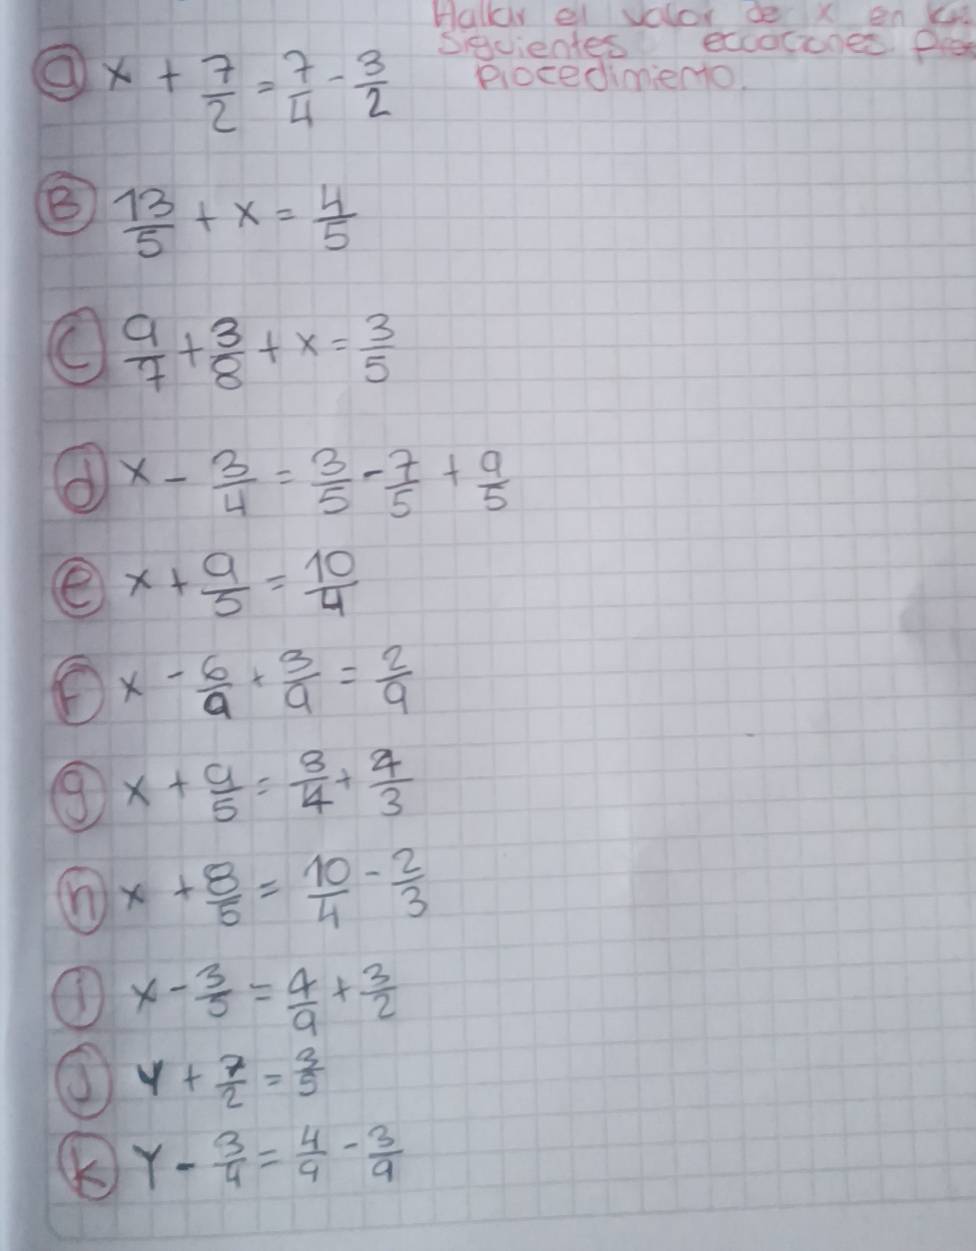 Hallar el valor de x en
siguientes ecuaciones
Procedimiento.
a x + 7/2 = 7/4 - 3/2
B 13/5 + x = 4/5
C 9/7 + 3/8 + x = 3/5
d x - 3/4 = 3/5 - 7/5 + 9/5
e x + 9/5 = 10/4
F x - 6/9 + 3/9 = 2/9
g x + 9/5 = 3/4 + 4/3
h x + 8/5 = 10/4 - 2/3
i x - 3/5 = 4/9 + 3/2
J Y + 7/2 = 3/5
K Y - 3/4 = 4/9 - 3/9